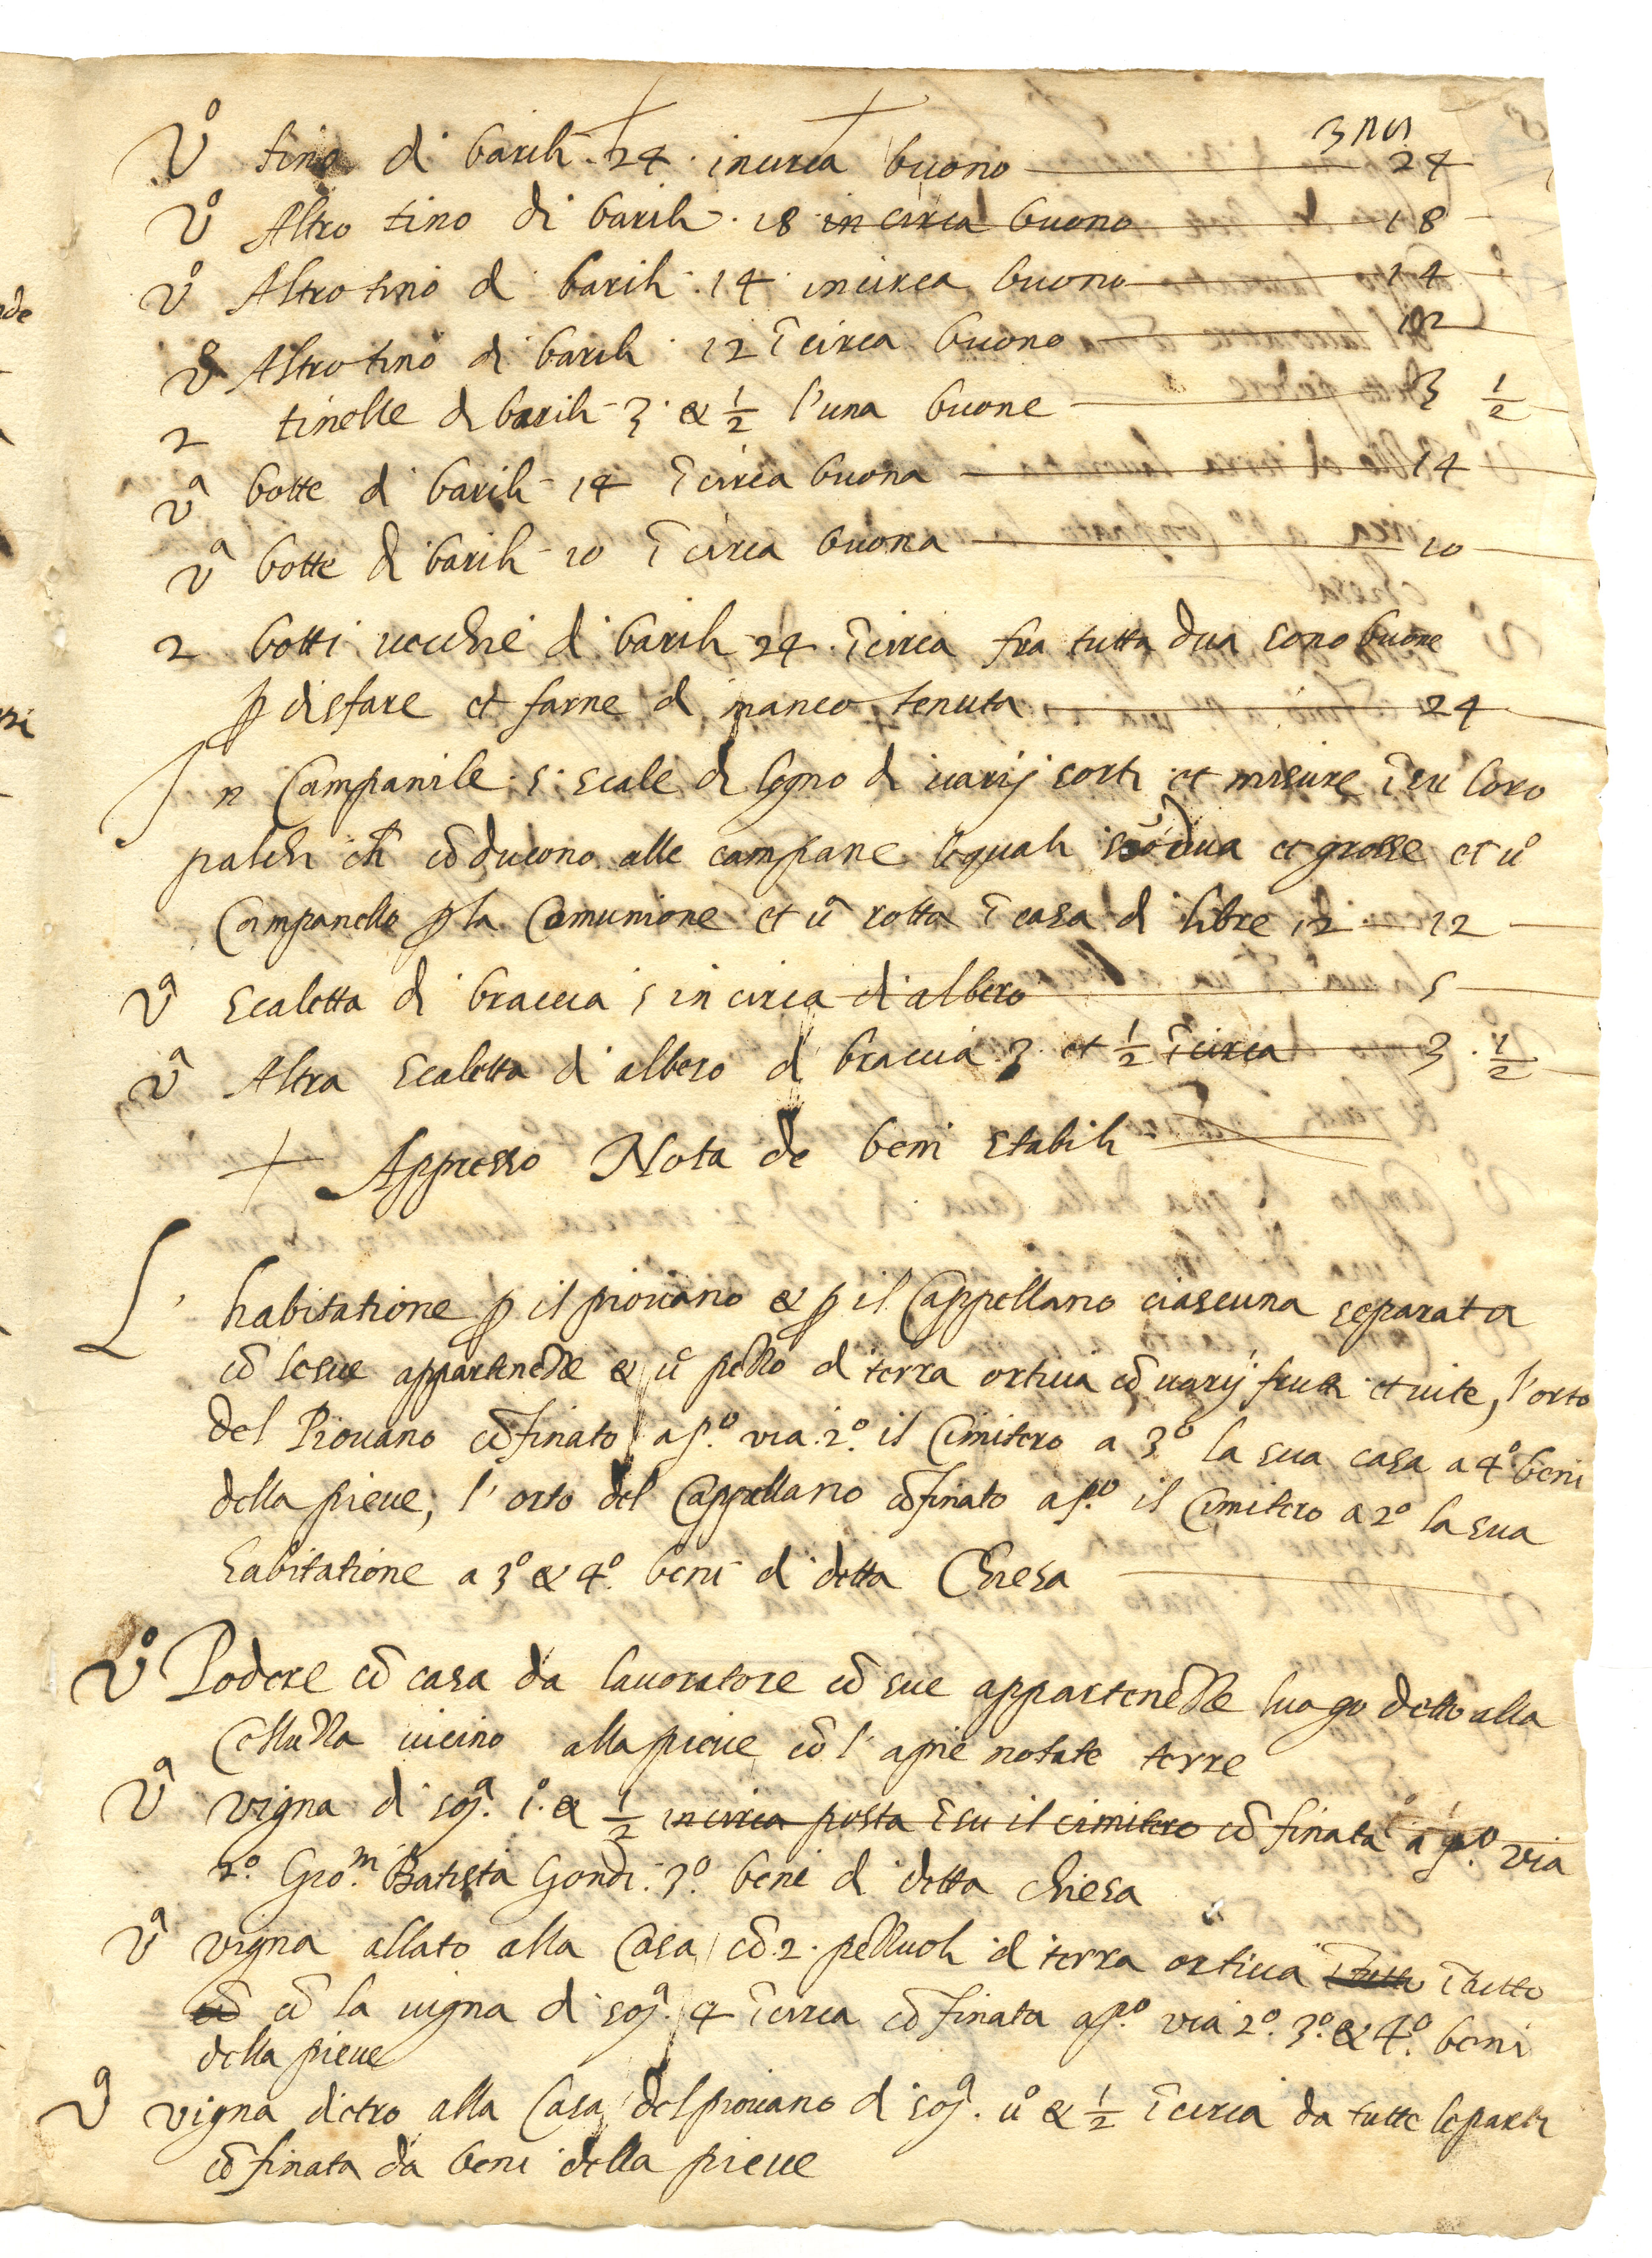 Vº tino di barili 24 incirca buono 24
Vº Altro tino di barili 18 in circa buono 18
Vº Altro tino di barili 14 incirca buono 14
Vº Altro tino di barili 12 ĩ circa buono 12
2 tinelle di barili 3 & 1/2 l'una buone 3 1/2
Vª botte di barili 14 ĩ circa buona 14
Vª botte di barili 10 ĩ circa buona 10
2 botti uecchie di barili 24 ĩ circa fra tutta dua sono buone
ꝑ disfare et farne di manco tenuta 24
In Campanile 5 scale di legno di uarij sorti et misure ĩ su loro
palchi ch̃ cõducono alle campane lequali sõ dua et grosse et uº
Campanello ꝑ la Comunione et uª rotta ĩ casa di libre 12 12
Vª Scaletta di braccia 5 in circa di albero 5
Vª Altra Scaletta di albero di braccia 3 et 1/2 ĩ circa 3 1/2
Appresso Nota de beni stabili
L'habitatione ꝑ il piouano & ꝑ il Cappellano ciascuna separata
cõ lesue appartenẽze & uº pezzo di terra ortiua cõ uarij frutti et uite, l'orto
del Piouano cõfinato a pº. via 2º. il Cimitero a 3º la sua casa a 4º beni
della pieue, l'orto del Cappellano cõfinato a pº. il Cimitero a 2º la sua
habitatione a 3º & 4º. beni di detta Chiesa
Vº Podere cõ casa da lauoratore cõ sue appartenẽze luogo detto alla
Colluzza uicino alla pieue cõ l'apie notate terre
Vª vigna di sojª. 1º. & 1/2 incirca posta ĩ su il cimitero cõfinata a pº. via
2º. Gioᵐ. Batista Gondi 3º. beni di detta chiesa
Vª vigna allato alla Casa cõ 2 pezzuoli di terra ortiua ĩ tutto
cõ la uigna di sojª. 4 ĩ circa cõfinata a pº. via 2º. 3º. & 4º. beni
della pieue
Vª vigna dietro alla Casa del piouano di sojª. uº & 1/2 ĩ circa da tutte le parti
cõfinata da beni della pieue